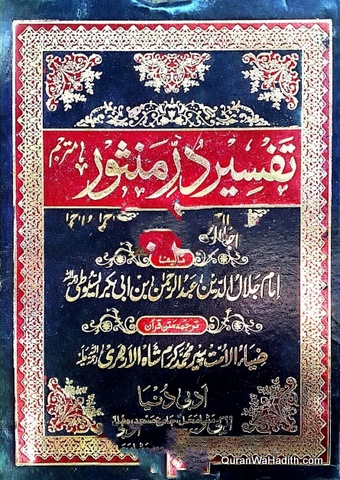 تفسیر دُرِّ منثور مترجم
تالیف
امام جلال الدین عبدالرحمٰن بن ابی بکر السیوطی
ترجمہ متن قرآن
ضیاء الامت پیر محمد کرم شاہ الازھری
ادبی دُنیا
QuranWaHadith.com